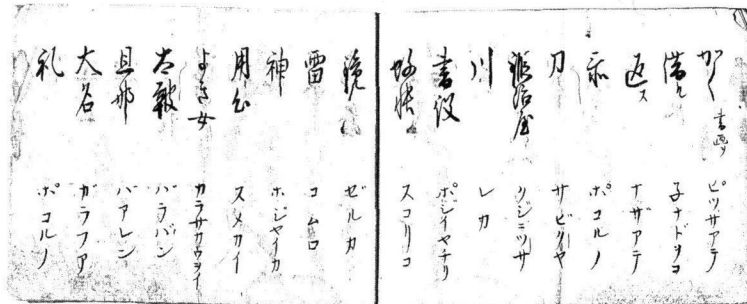 かく 書画 ピツサアテ
子ナドヲコ
返ス ナザアテ
ポコルノ
刀 サビクヤ
鍛冶屋 クジニツサ
川 レカ
書役 ポシイヤチリ
スコリコ
鏡 ゼルカ
雷 コムロ
神 ホジヤイカ
用心 スメカイ
よき女 カラサカウヲイ
太鞁 バラバン
旦那 バアレン
大名 ガラフア
礼 ポコルノ